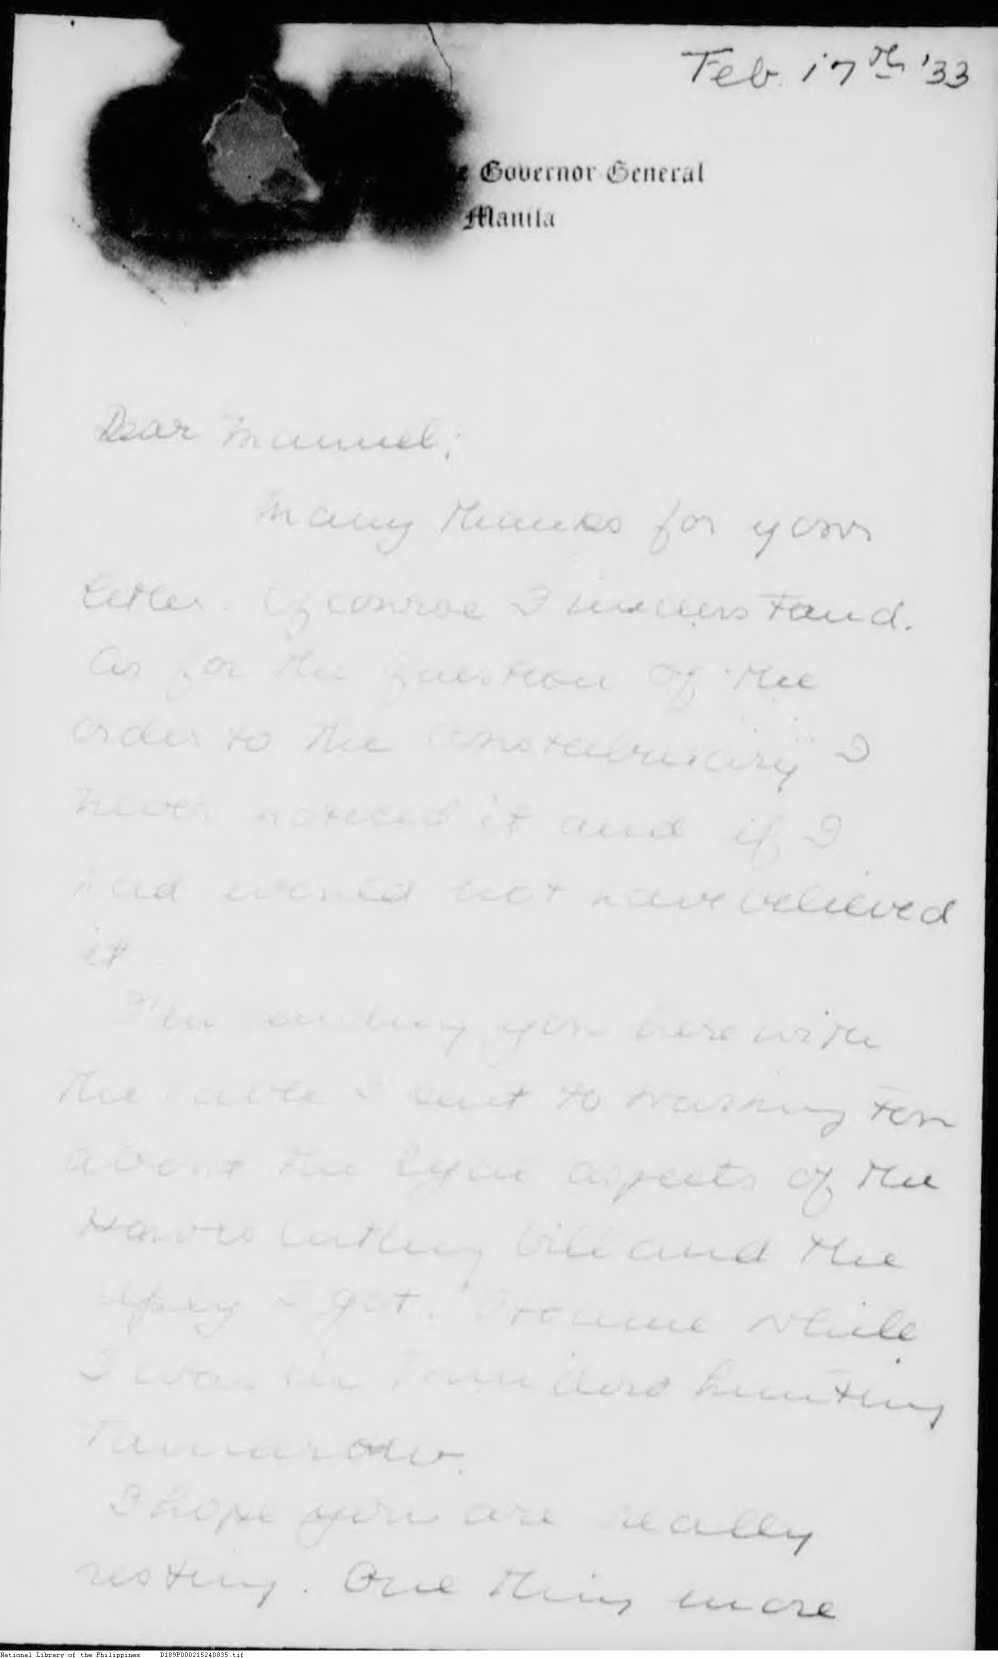 Feb. 17th '33
Governor General
Manila
Dear Manuel;
Many thanks for your
letter. Of course I understand.
As for the question of the
order to the Constabulary I
never noticed it and if I
had would not have believed
it
I'm sending you herewith
the cable I sent to Washington
about the legal aspects of the
Hawes Cutting bill and the
reply I got. It came while
I was in Mindoro hunting
Tamarow.
I hope you are really
resting. One thing more
National Library of the Philippines D189P000215240835.tif